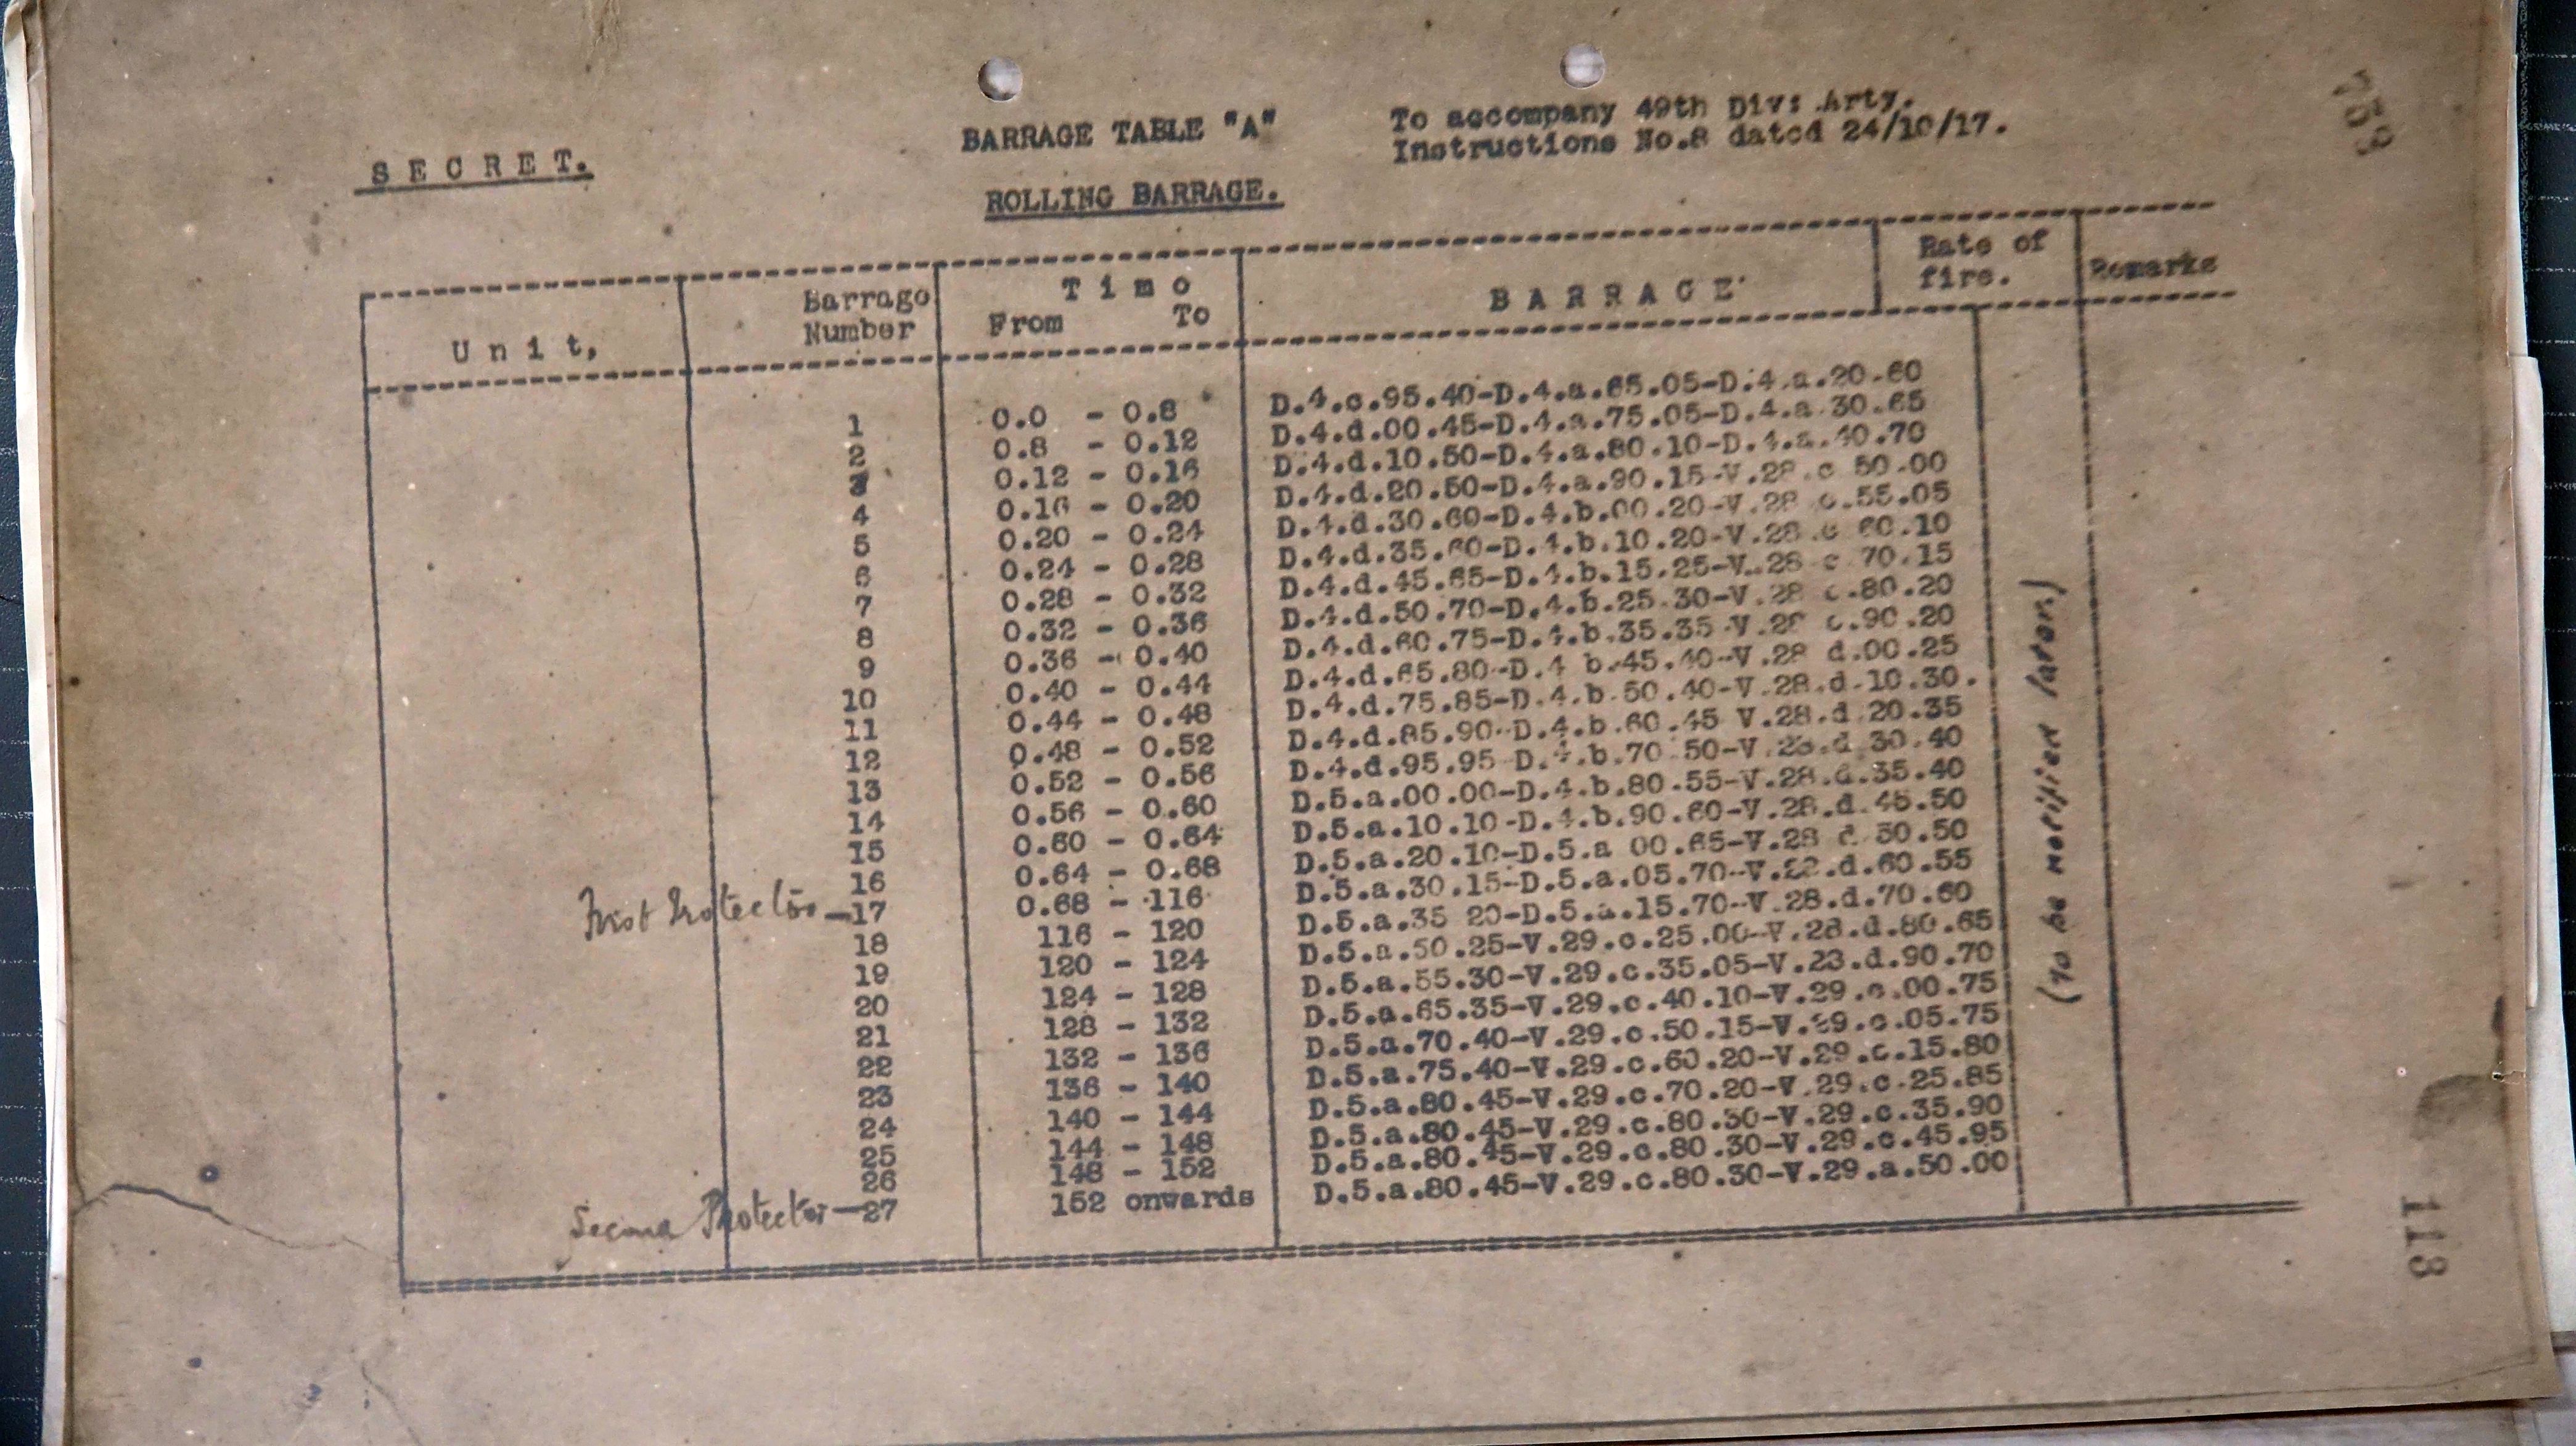 759
To accompany 49th Div: Arty.
Instructions No.8 dated 24/10/17.
BARRAGE TABLE "A"
SECRET.
ROLLING BARRAGE.
Unit, Barrage Number Time From To BARRAGE Rate of fire. Remarks
1 0.0 - 0.8 D.4.c.95.40-D.4.a.65.05-D.4.a.20.60
2 0.8 - 0.12 D.4.d.00.45-D.4.a.75.05-D.4.a.30.65
3 0.12 - 0.16 D.4.d.10.50-D.4.a.80.10-D.4.a.40.70
4 0.16 - 0.20 D.4.d.20.50-D.4.a.90.15-V.28.c.50.00
5 0.20 - 0.24 D.4.d.30.60-D.4.b.00.20-V.28.c.55.05
6 0.24 - 0.28 D.4.d.35.60-D.4.b.10.20-V.28.c.60.10
7 0.28 - 0.32 D.4.d.45.65-D.4.b.15.25-V.28 c 70.15
8 0.32 - 0.36 D.4.d.50.70-D.4.b.25.30-V.28 c.80.20
9 0.36 - 0.40 D.4.d.60.75-D.4.b.35.35-V.28 c.90.20
10 0.40 - 0.44 D.4.d.65.80-D.4 b.45.40-V.28 d.00.25
11 0.44 - 0.48 D.4.d.75.85-D.4.b.50.40-V.28.d.10.30.
12 0.48 - 0.52 D.4.d.85.90-D.4.b.60.45 V.28.d.20.35
13 0.52 - 0.56 D.4.d.95.95-D.4.b.70 50-V.28.d.30.40
14 0.56 - 0.60 D.5.a.00.00-D.4.b.80.55-V.28.d.35.40
15 0.60 - 0.64 D.5.a.10.10-D.4.b.90.60-V.28.d.45.50
16 0.64 - 0.68 D.5.a.20.10-D.5.a 00.65-V.28 d 50.50
First Protector - 17 0.68 - 116 D.5.a.30.15-D.5.a.05.70-V.28.d.60.55
18 116 - 120 D.5.a.35 20-D.5.a.15.70-V.28.d.70.60
19 120 - 124 D.5.a.50.25-V.29.c.25.00-V.28.d.80.65
20 124 - 128 D.5.a.55.30-V.29.c.35.05-V.28.d.90.70
21 128 - 132 D.5.a.65.35-V.29.c.40.10-V.29.c.00.75
22 132 - 136 D.5.a.70.40-V.29.c.50.15-V.29.c.05.75
23 136 - 140 D.5.a.75.40-V.29.c.60.20-V.29.c.15.80
24 140 - 144 D.5.a.80.45-V.29.c.70.20-V.29.c.25.85
25 144 - 148 D.5.a.80.45-V.29.c.80.30-V.29.c.35.90
26 148 - 152 D.5.a.80.45-V.29.c.80.30-V.29.c.45.95
Second Protector - 27 152 onwards D.5.a.80.45-V.29.c.80.30-V.29.a.50.00
(To be notified later.)
118